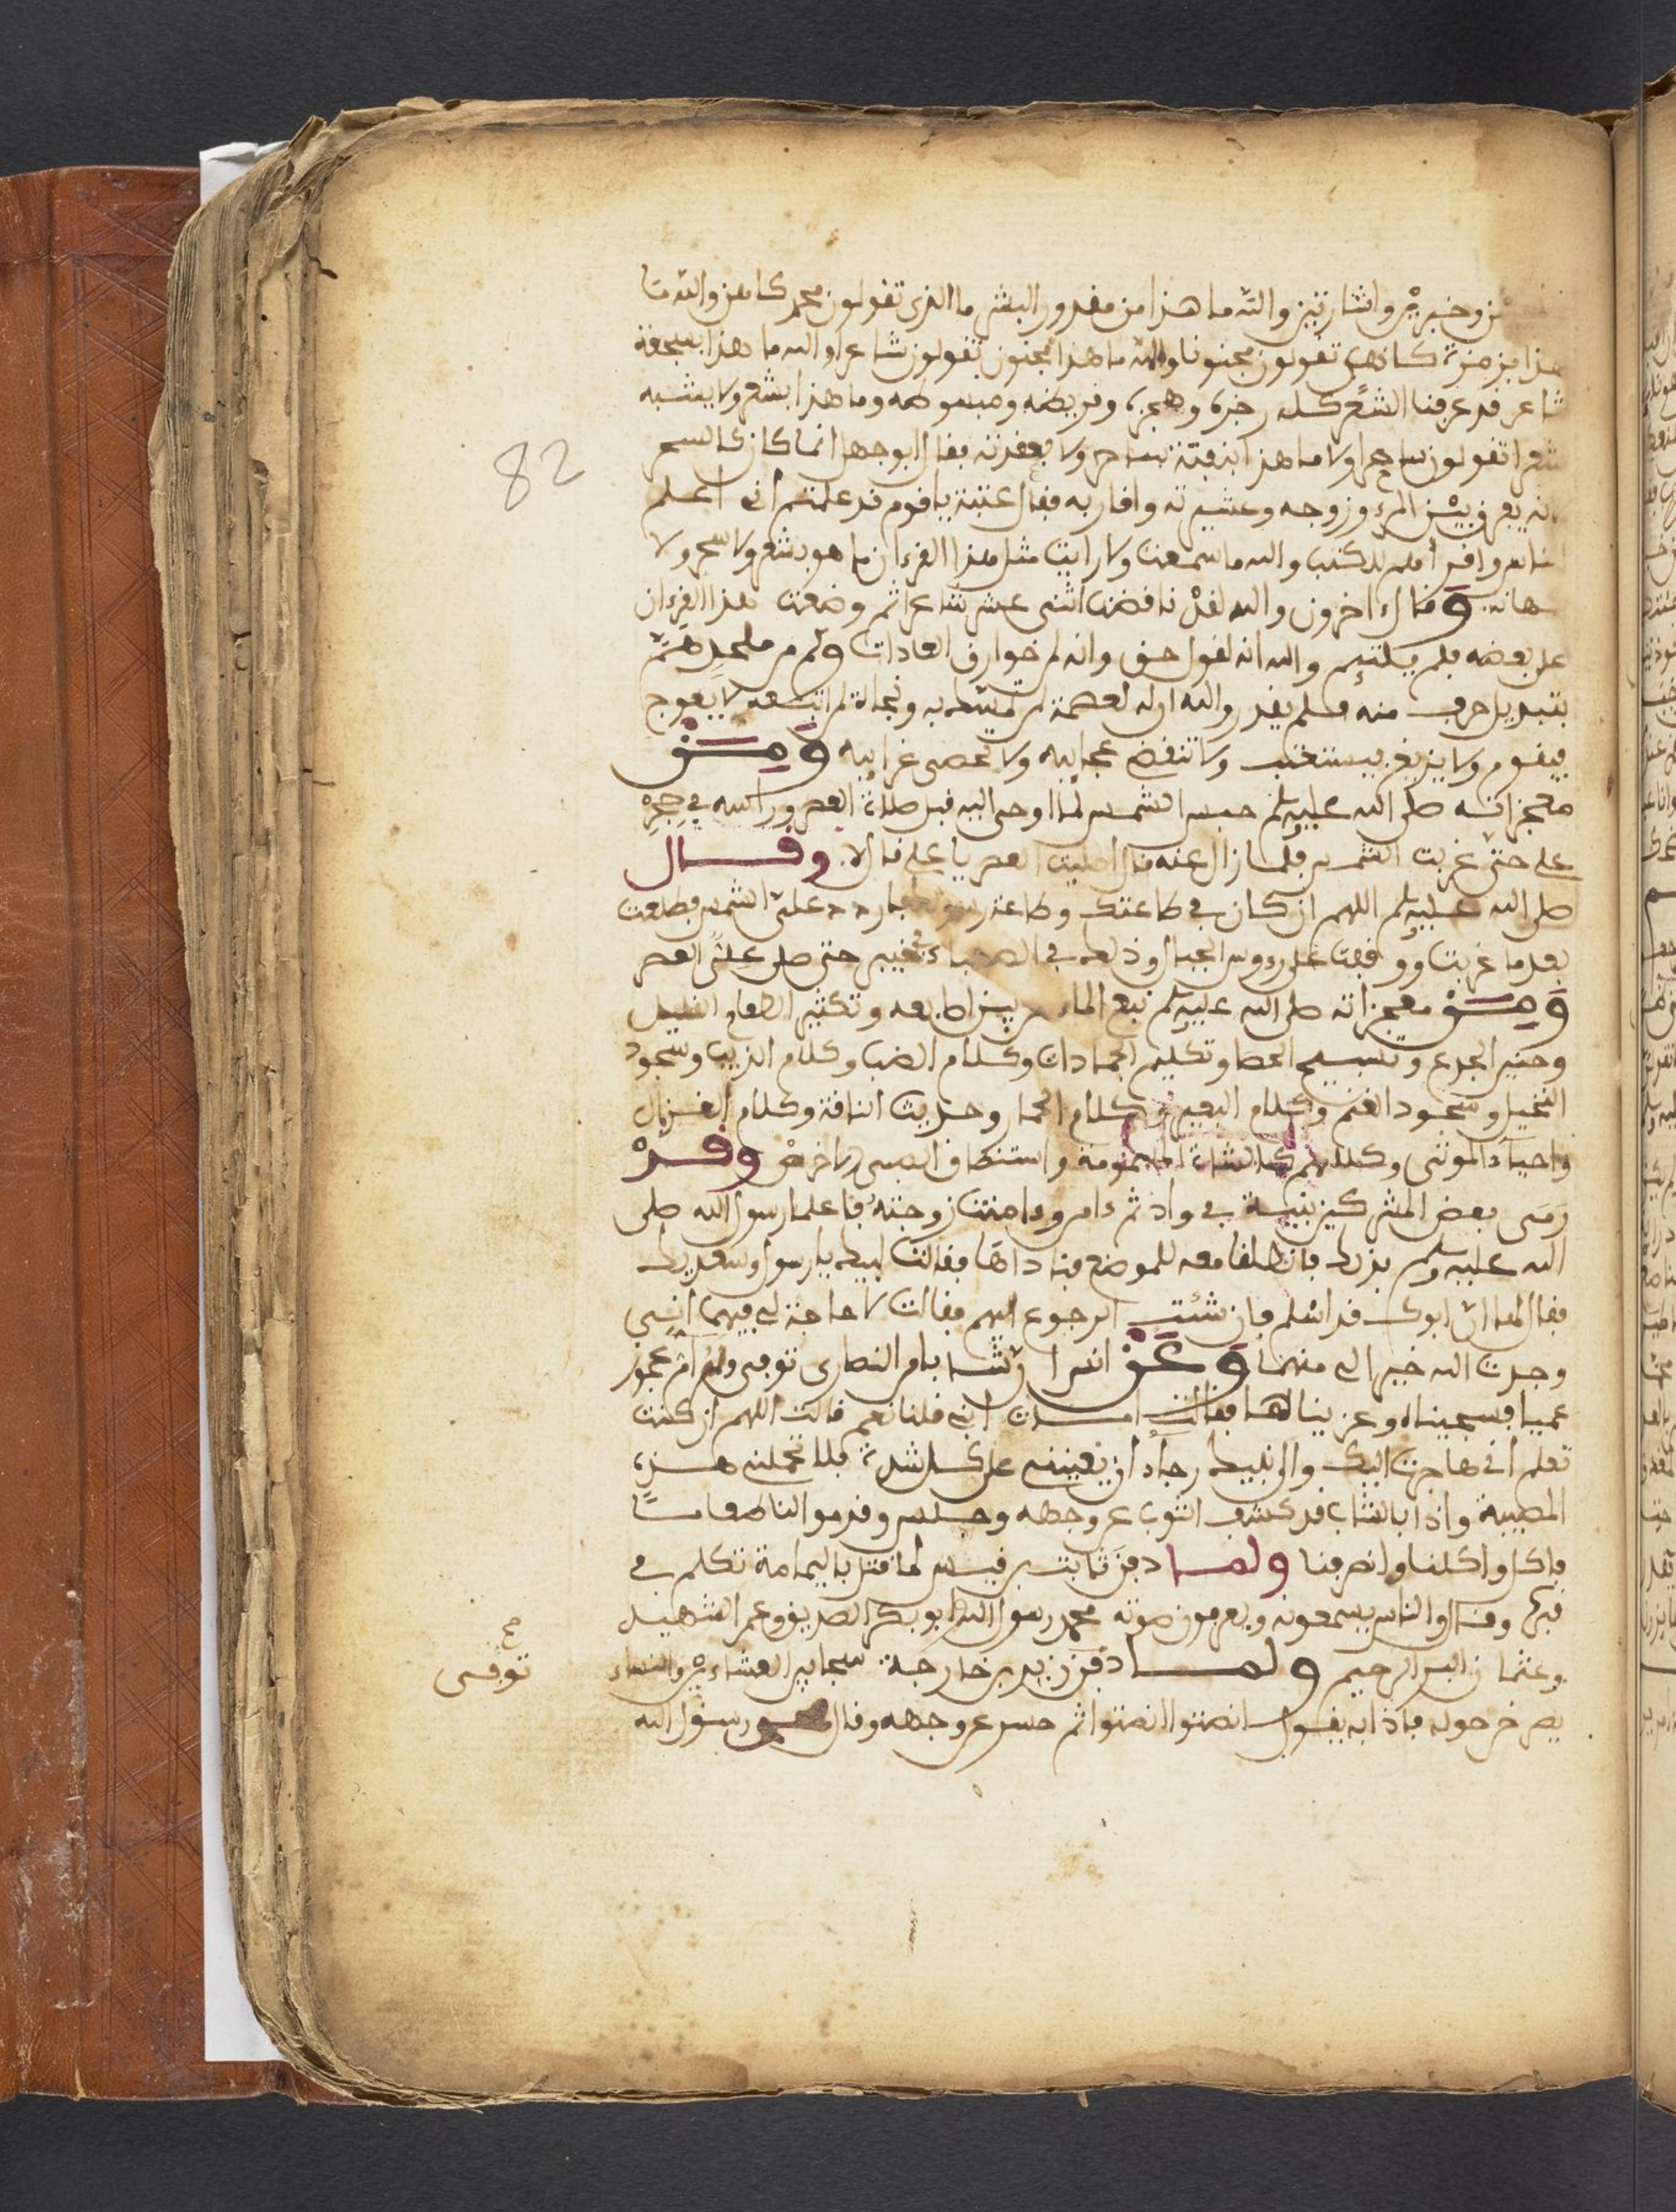 والله ما هذا من مقدور البشر ما الذى تقولون محمد كاهن والله ما
هذا بزمزمة كاهن تقولون مجنونا والله ما هذا بمجنون تقولون شاعرا والله ما هذا
شاعر قد عرفنا الشعر كله رجزه وهجزه وقريضه ومبسوطه وما هذا بشعر ولا يشبه
شعرا تقولون ساحرا ولا ما هذا بنفثة ساحر ولا بعقدته فقال ابو جهل انما كان كالسحر
انه يفرق بين المرء وزوجه وعشيرته واقاربه فقال عتبة يا قوم قد علمتم انى اعلم
والله ما سمعت ولا رايت مثل هذا القرءان ما هو بشعر ولا سحر ولا
كهانة وقال ءاخرون والله لقد ناقضت اثنى عشر شاعرا ثم وضعت هذا القرءان
على بعضه فلم يلتئم والله انه لقول حق وانه لمن خوارق العادات وكم من ملحد هم
بتبديل حرف منه فلم يقدر والله انه لعصمة لمن تمسك به ونجاة لمن اتبعه لا يعوج
فيقوم ولا يزيغ فيستعتب ولا تنقضى عجايبه ولا تحصى غرايبه ومن
معجزاته صلى الله عليه وسلم حبس الشمس لما اوحى اليه قبل صلاة العصر وراسه فى حجره
على حتى غربت الشمس فلما زال عنه قال اصليت العصر يا على قال لا. وقال
صلى الله عليه وسلم اللهم ان كان فى طاعتك وطاعة رسولك فاردد على الشمس فطلعت
بعد ما غربت ووقفت على رءوس الجبال وذلك فى الصهباء فى خيبر حتى صلى على العصر
ومن معجزاته صلى الله عليه وسلم نبع الماء من بين اصابعه وتكثير الطعام القليل
وحنين الجذع وتسبيح الحصا وتكليم الجمادات وكلام الضب وكلام الذيب وسجود
النخيل وسجود الغنم وكلام البعير وكلام الحمار وحديث الناقة وكلام الغزال
واحياء الموتى وكلامهم كالشاة المسمومة واستنطاق الصبى والاخرص وقد
رمى بعض المشركين بنية فى واد ثم ءامن وءامنت زوجته فاعلما رسول الله صلى
الله عليه وسلم بذلك فانطلقا معه للموضع فناداها فقالت لبيك يا رسول وسعديك
فقال لها ان ابوك قد اسلم فان شئت الرجوع اليهم فقالت لا حاجة لى فيهما انى
وجدت الله خيرا لى منهما وعن انس ان شابا من النصارى توفى وله ام عجوز
عميا فسجيناه وعزيناها فقالت امات ابنى قلنا نعم قالت اللهم ان كنت
تعلم انى هاجرت اليك والى نبيك رجاء ان يعيننى على كل شدة فلا تحملنى هذه
المصيبة واذا بالشاب قد كشف الثوب عن وجهه وجلس وقدموا لنا طعاما
فاكل واكلنا وانصرفنا ولما دفن ثابت بن قيس لما قتل باليمامة تكلم فى
قبره وقال والناس يسمعونه ويعرفون صوته محمد رسول الله ابو بكر الصديق وعمر الشهيد
وعثمان البر الرحيم ولما دفن زيد بن خارجة سجى بين العشاءين والنساء
يصرخن حوله فاذا به يقول انصتوا انصتوا ثم حسر عن وجهه وقال محمد رسول الله
توفى
82